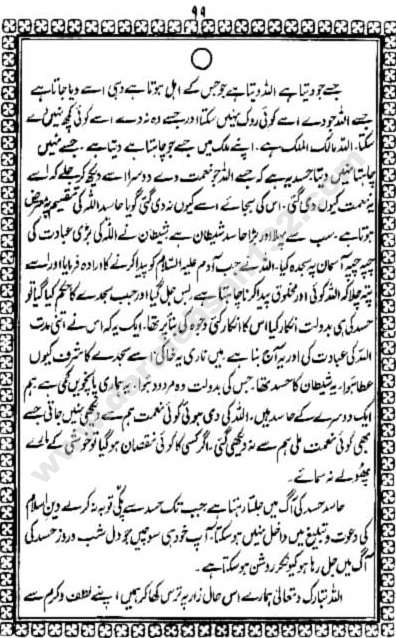 ۹۹
جسے جو دیتا ہے اللہ دیتا ہے جو جس کے اہل ہوتا ہے وہی اسے دیا جاتا ہے
جسے اللہ جو دے اسے کوئی روک نہیں سکتا اور جسے وہ نہ دے اسے کوئی کچھ نہیں دے
سکتا۔ اللہ مالک الملک ہے۔ اپنے ملک میں جسے جو چاہتا ہے دیتا ہے۔ جسے نہیں
چاہتا نہیں دیتا حسد یہ ہے کہ جسے اللہ جو نعمت دے دوسرا اسے دیکھ کر جلے کہ اسے
یہ نعمت کیوں دی گئی۔ اس کی بجائے اسے کیوں نہ دی گئی گویا حاسد اللہ کی تقسیم پر معترض
ہوتا ہے۔ سب سے پہلا اور بڑا حاسد شیطان ہے شیطان نے اللہ کی بڑی عبادت کی
چپہ چپہ آسمان پہ سجدہ کیا۔ اللہ نے جب آدم علیہ السلام کو پیدا کرنے کا ارادہ فرمایا اور اسے
پتہ چلا کہ اللہ کوئی اور مخلوق پیدا کرنا چاہتا ہے بس جل گیا اور جب سجدے کا حکم کیا گیا تو
حسد ہی بدولت انکار کیا اس کا انکار کئی وجوہ کی بنا پر تھا۔ ایک یہ کہ اس نے اتنی مدت
اللہ کی عبادت کی اور یہ آج بنا ہے میں ناری یہ خاکی اسے سجدے کا شرف کیوں
عطا ہوا۔ یہ شیطان کا حسد تھا۔ جس کی بدولت وہ مردود ہوا۔ یہ بیماری پانچوں لگی ہے ہم
ایک دوسرے کے حاسد ہیں، اللہ کی دی ہوئی کوئی نعمت ہم سے دیکھی نہیں جاتی جسے
بھی کوئی نعمت ملی ہم سے نہ دیکھی گئی، اگر کسی کا کوئی نقصان ہو گیا تو خوشی کے مارے
پھولے نہ سمائے۔
حاسد حسد کی آگ میں جلتا رہتا ہے جب تک حسد سے پکی توبہ نہ کرے دین اسلام
کی دعوت و تبلیغ میں داخل نہیں ہو سکتا۔ آپ خود ہی سوچیں جو دل شب و روز حسد کی
آگ میں جل رہا ہو کیونکر روشن ہو سکتا ہے۔
اللہ تبارک و تعالیٰ ہمارے اس حال زار پہ ترس کھا کر ہمیں اپنے لطف و کرم سے